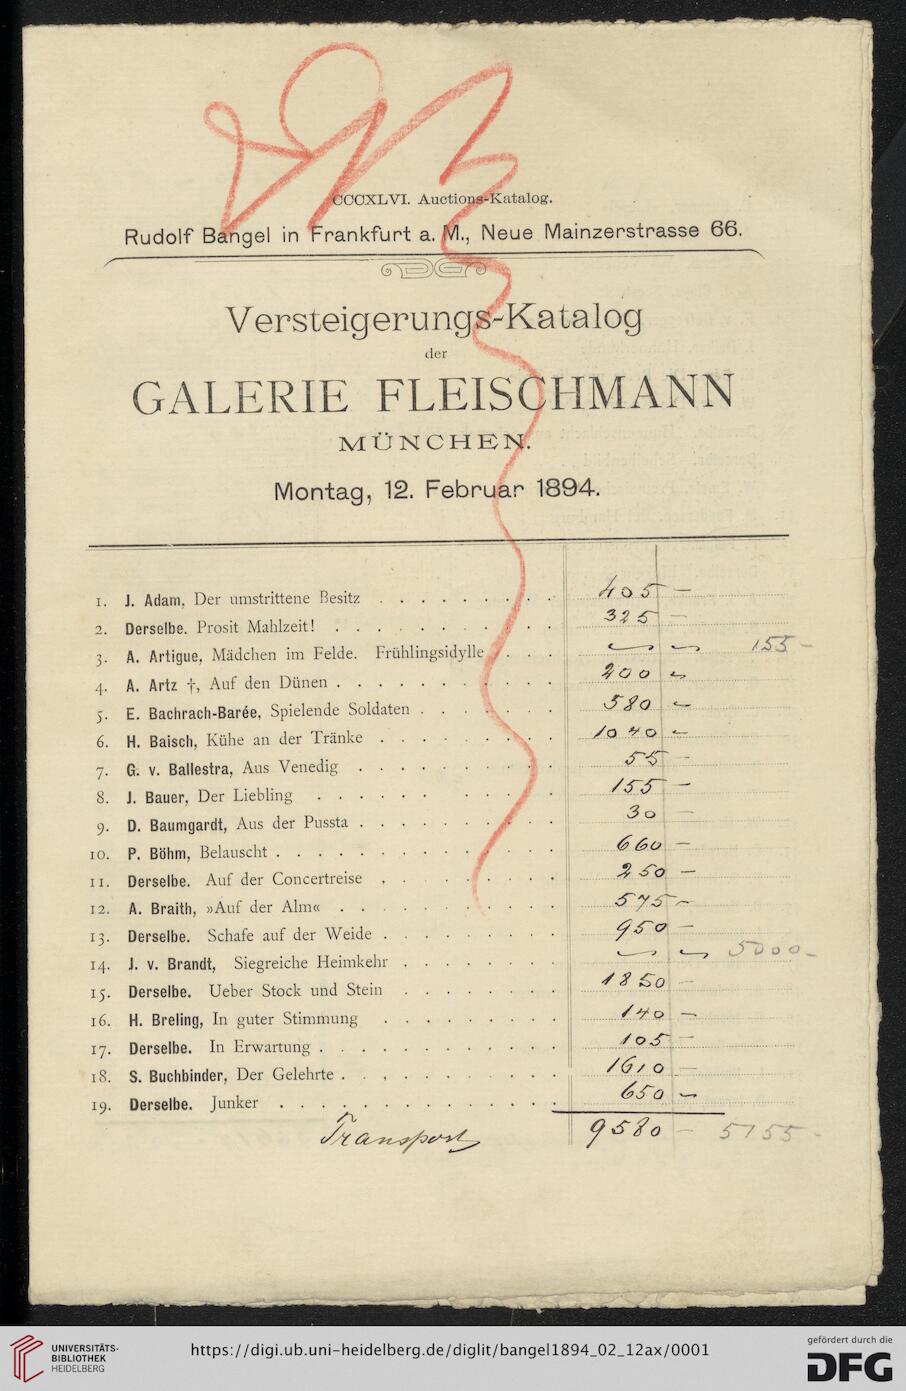 CCCXLVI. Auctions-Katalog.
Rudolf Bangel in Frankfurt a. M., Neue Mainzerstrasse 66.
Versteigerungs-Katalog
der
GALERIE FLEISCHMANN
MÜNCHEN.
Montag, 12. Februar 1894.
1. J. Adam, Der umstrittene Besitz . . . . . . . . . 405 —
2. Derselbe. Prosit Mahlzeit! . . . . . . . . . . . 325 —
3. A. Artigue, Mädchen im Felde. Frühlingsidylle . . . 155 —
4. A. Artz †, Auf den Dünen . . . . . . . . . . 200 —
5. E. Bachrach-Barée, Spielende Soldaten . . . . . . . 580 —
6. H. Baisch, Kühe an der Tränke . . . . . . . . . 1040 —
7. G. v. Ballestra, Aus Venedig . . . . . . . . . . 55 —
8. J. Bauer, Der Liebling . . . . . . . . . . . 155 —
9. D. Baumgardt, Aus der Pussta . . . . . . . . . . 30 —
10. P. Böhm, Belauscht . . . . . . . . . . . . . 660 —
11. Derselbe. Auf der Concertreise . . . . . . . . . 250 —
12. A. Braith, »Auf der Alm« . . . . . . . . . . . 575 —
13. Derselbe. Schafe auf der Weide . . . . . . . . . 950 —
14. J. v. Brandt, Siegreiche Heimkehr . . . . . . . . 5000 —
15. Derselbe. Ueber Stock und Stein . . . . . . . . 1850 —
16. H. Breling, In guter Stimmung . . . . . . . . . 140 —
17. Derselbe. In Erwartung . . . . . . . . . . . . 105 —
18. S. Buchbinder, Der Gelehrte . . . . . . . . . . 1610 —
19. Derselbe. Junker . . . . . . . . . . . . . . 650 —
Transport 9580 — 5155 -
UNIVERSITÄTS-
BIBLIOTHEK
HEIDELBERG
https://digi.ub.uni-heidelberg.de/diglit/bangel1894_02_12ax/0001
gefördert durch die
DFG